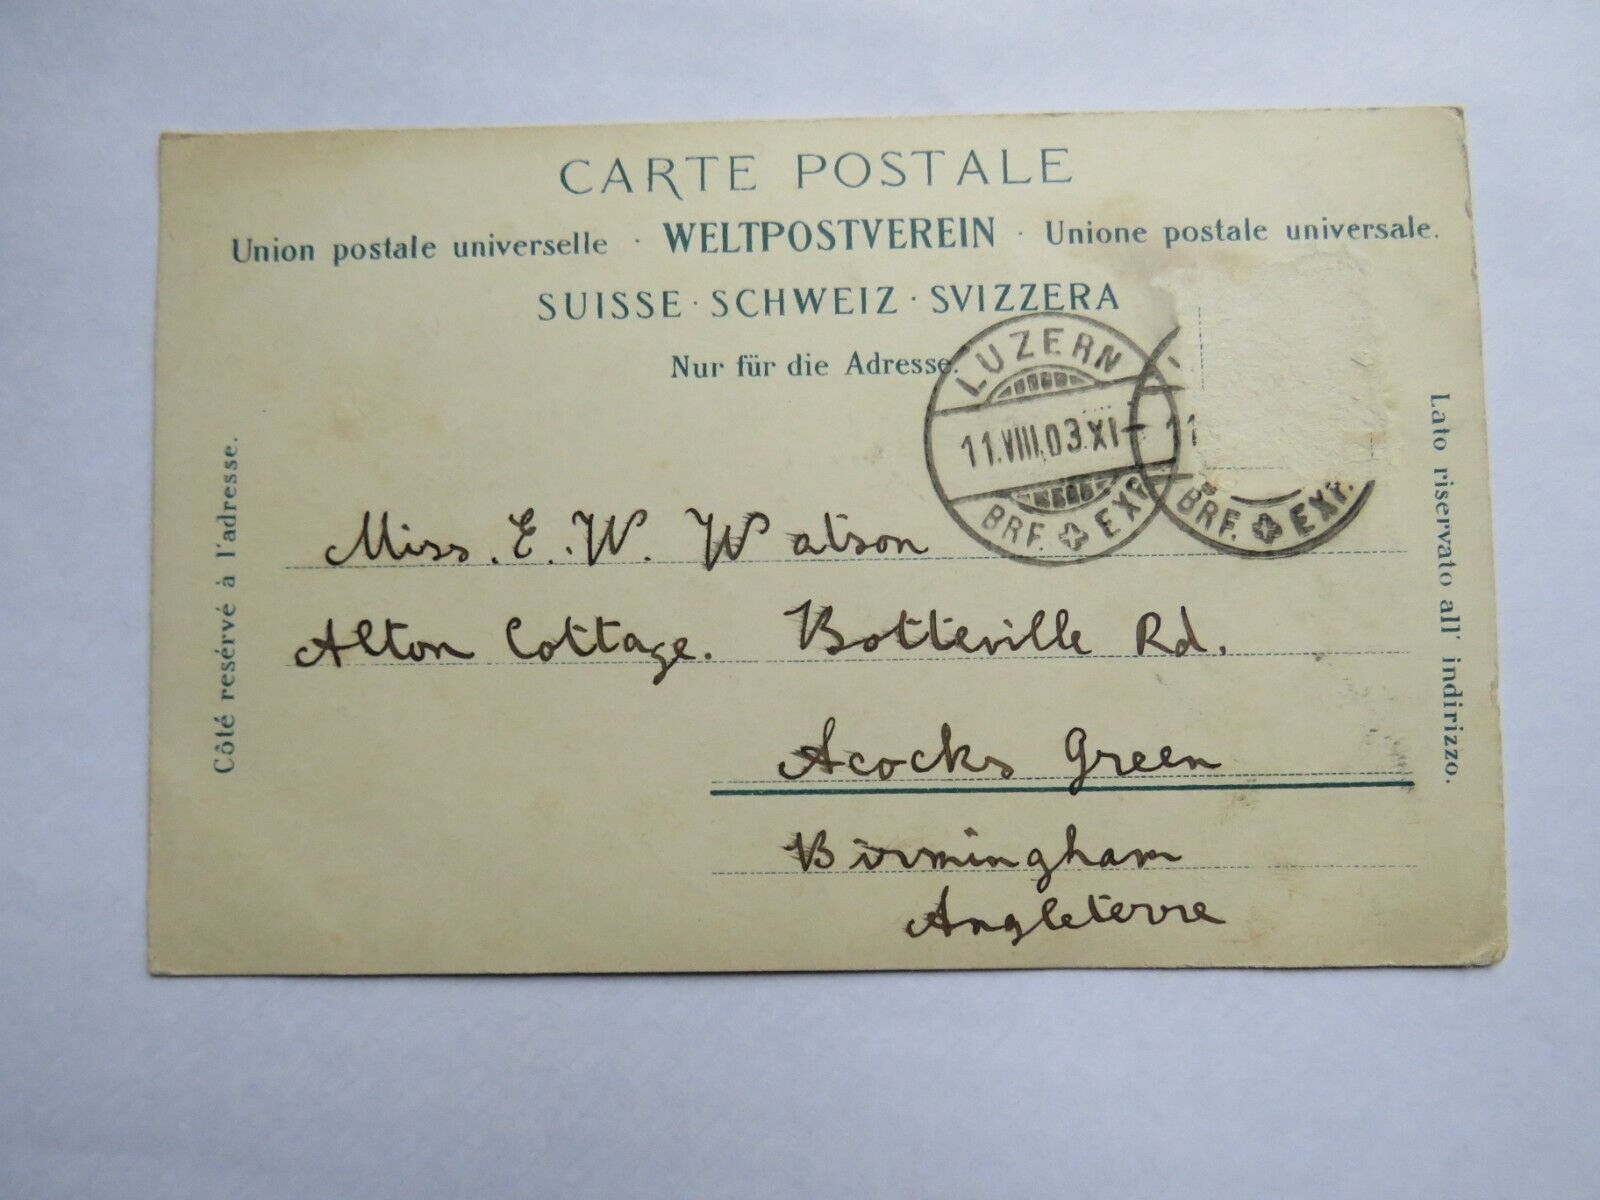 CARTE POSTALE
Union postale universelle · WELTPOSTVEREIN · Unione postale universale.
SUISSE · SCHWEIZ · SVIZZERA
Nur für die Adresse.
Côté resérvé à l'adresse.
Lato riservato all' indirizzo.
LUZERN
11.VIII.03.XI-
BRF. EXP.
11
BRF. EXP.
Miss. E. W. Watson
Alton Cottage. Botteville Rd.
Acocks Green
Birmingham
Angleterre